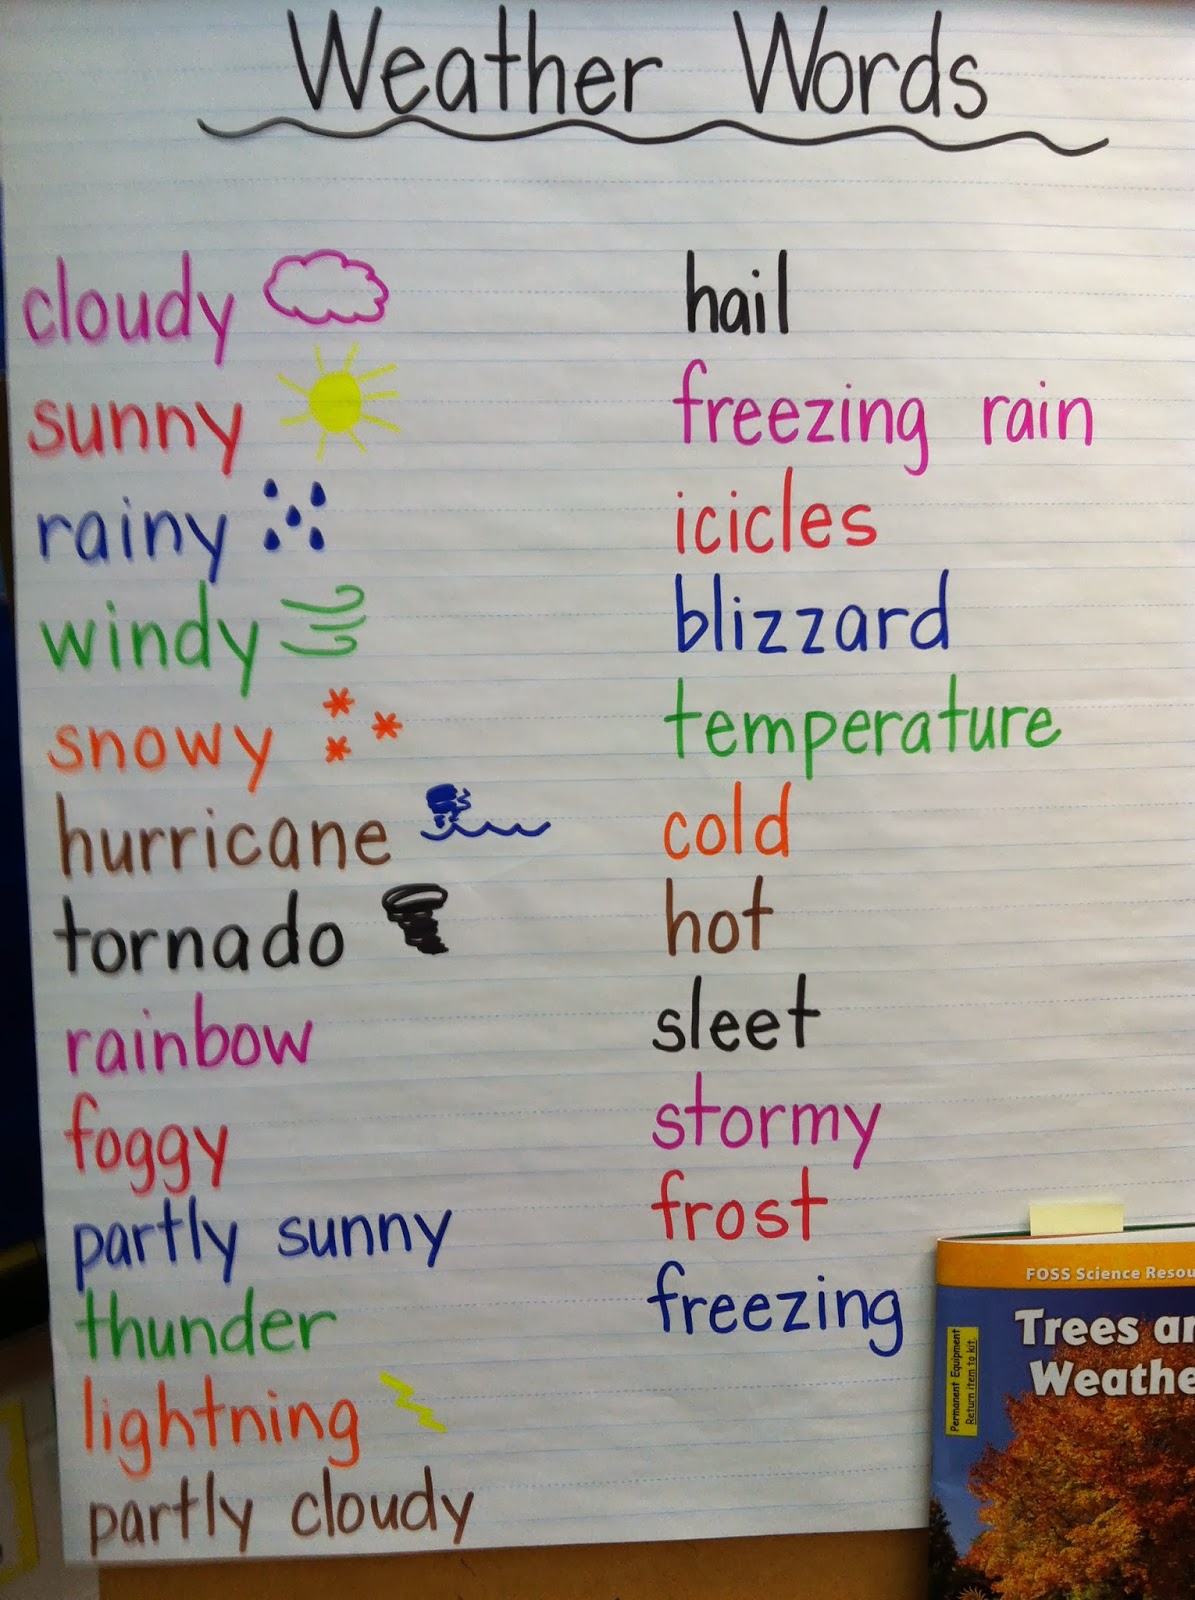 Weather Words
cloudy
sunny
rainy
windy
snowy
hurricane
tornado
rainbow
foggy
partly sunny
thunder
lightning
partly cloudy
hail
freezing rain
icicles
blizzard
temperature
cold
hot
sleet
stormy
frost
freezing
FOSS Science Resou
Trees an
Weathe
Permanent Equipment
Return item to kit.